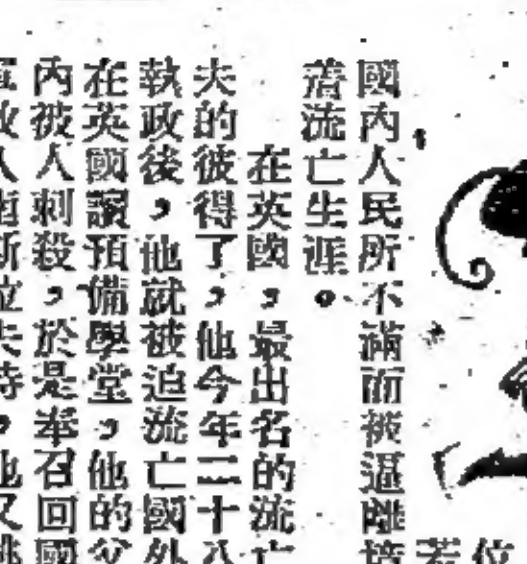 若位
國內人民所不滿而被逼離
著流亡生涯。
在英國，最出名的流亡
夫的彼得了，他今年二十八
執政後，他就被迫流亡國外
在英國讀預備學堂，他的父
內被人刺殺，於是奉召回國